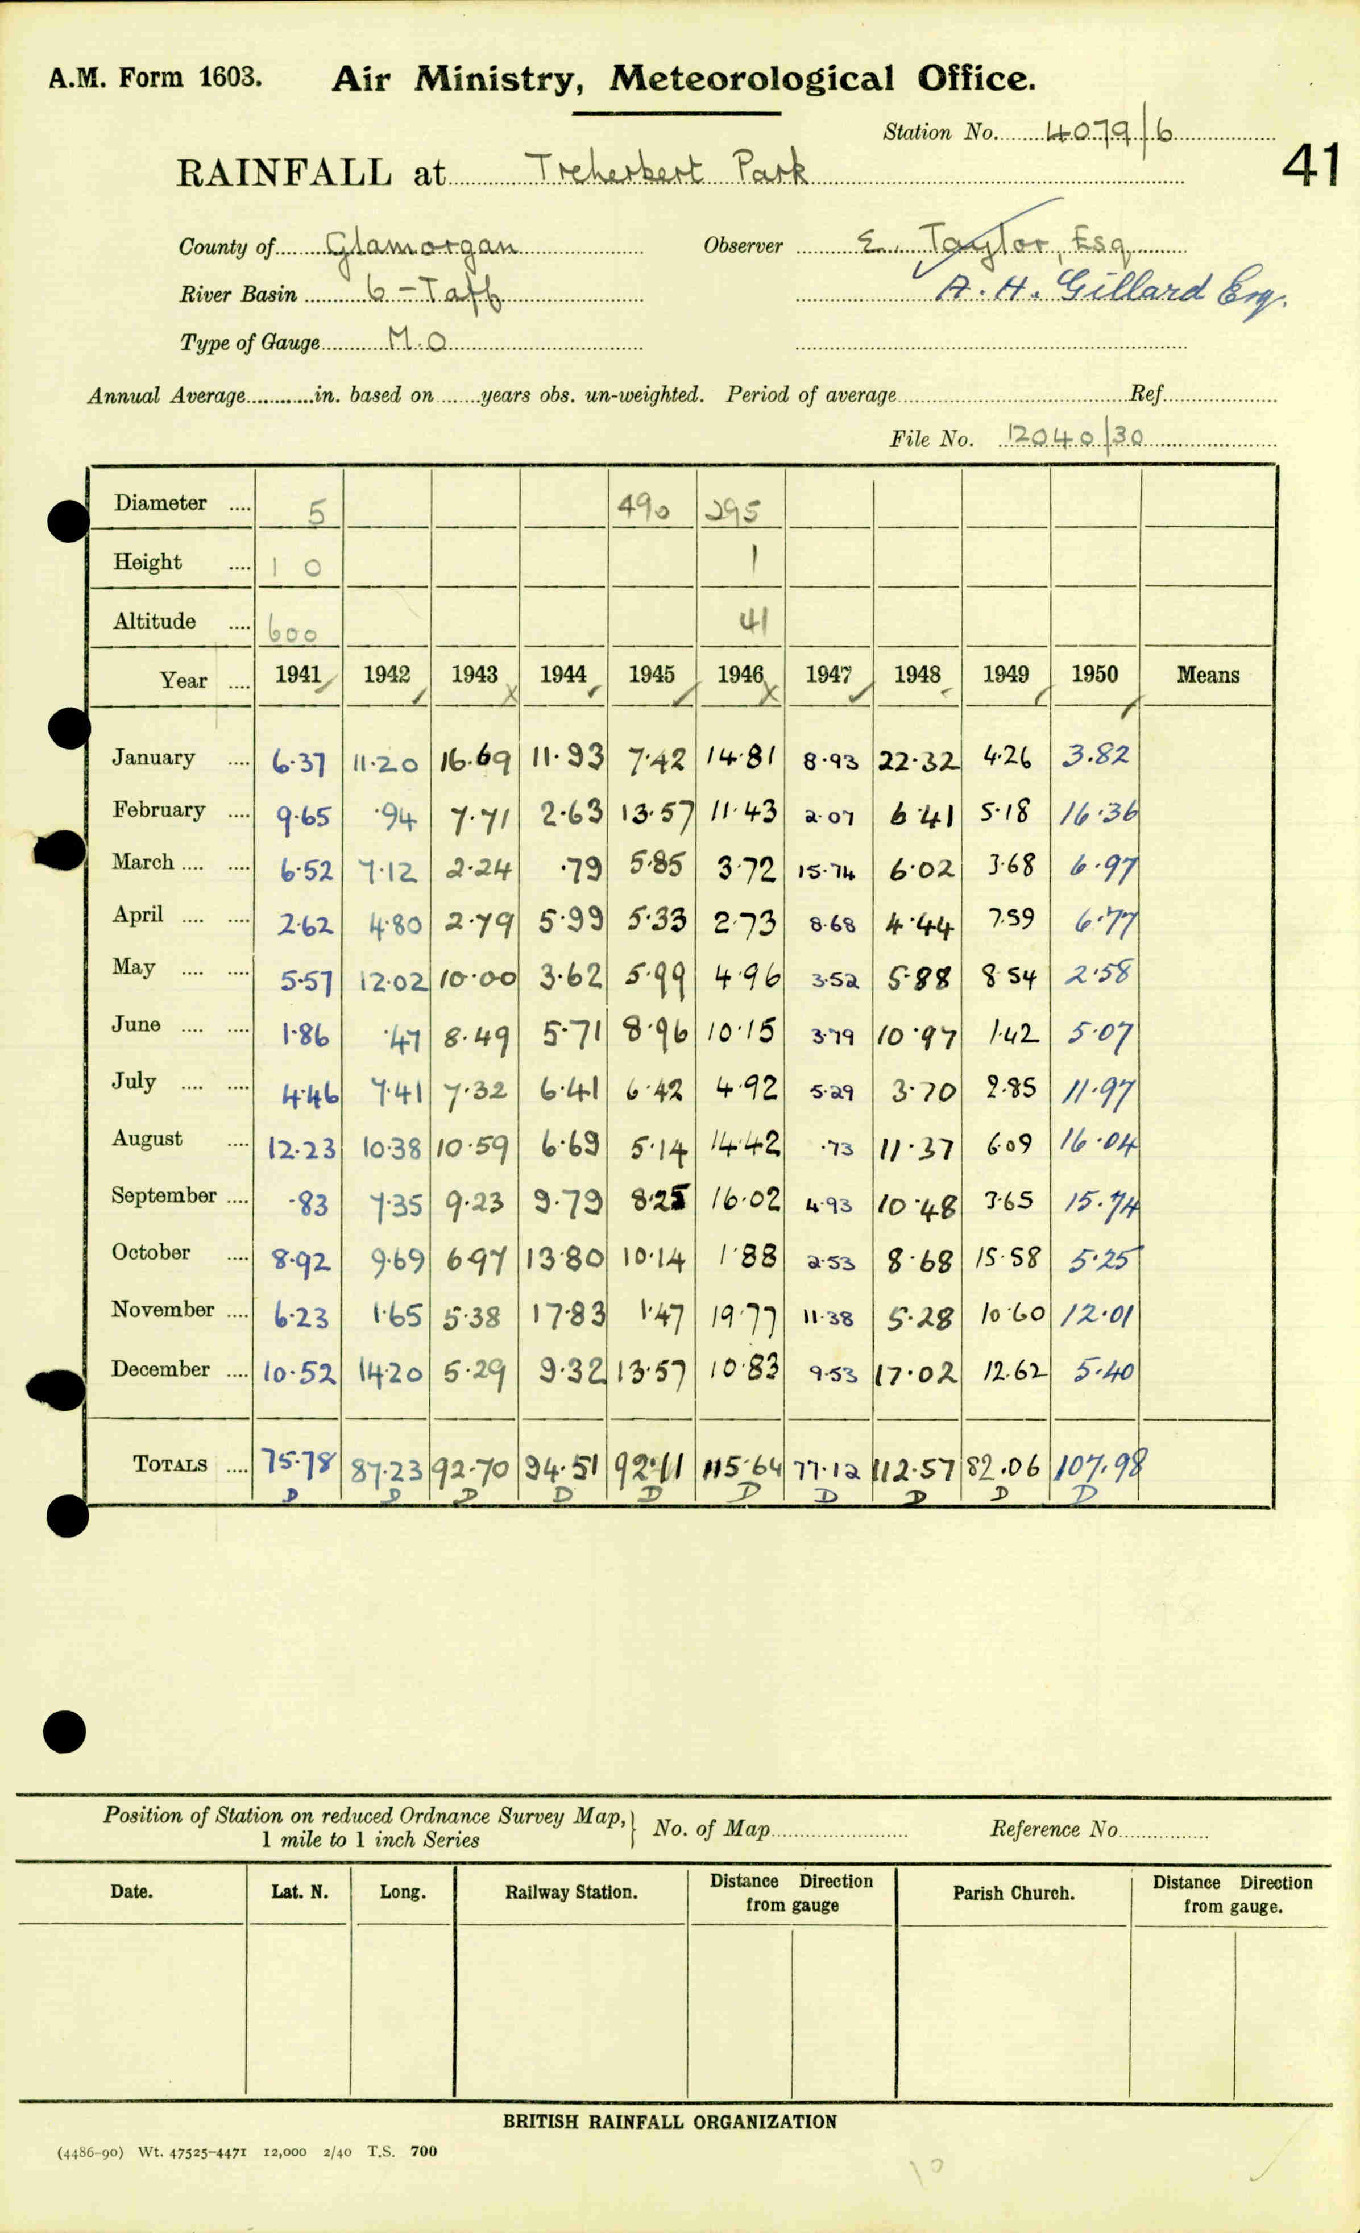 A.M. Form 1603. Air Ministry, Meteorological Office.
Station No. 4079/6
41
RAINFALL at Treherbert Park
County of Glamorgan Observer E. Taylor, Esq
River Basin 6 - Taff A. H. Gillard Esq.
Type of Gauge M.O
Annual Average............in. based on.......years obs. un-weighted. Period of average............Ref............
File No. 12040/30
Diameter .... 5 490 295
Height .... 1 0 1
Altitude .... 600 41
Year .... 1941 1942 1943 1944 1945 1946 1947 1948 1949 1950 Means
January .... 6.37 11.20 16.69 11.93 7.42 14.81 8.93 22.32 4.26 3.82
February .... 9.65 .94 7.71 2.63 13.57 11.43 2.07 6.41 5.18 16.36
March .... .... 6.52 7.12 2.24 .79 5.85 3.72 15.74 6.02 3.68 6.97
April .... .... 2.62 4.80 2.79 5.99 5.33 2.73 8.68 4.44 7.59 6.77
May .... .... 5.57 12.02 10.00 3.62 5.99 4.96 3.52 5.88 8.54 2.58
June .... .... 1.86 .47 8.49 5.71 8.96 10.15 3.79 10.97 1.42 5.07
July .... .... 4.46 7.41 7.32 6.41 6.42 4.92 5.29 3.70 2.85 11.97
August .... 12.23 10.38 10.59 6.69 5.14 14.42 .73 11.37 6.09 16.04
September .... .83 7.35 9.23 9.79 8.25 16.02 4.93 10.48 3.65 15.74
October .... 8.92 9.69 6.97 13.80 10.14 1.88 2.53 8.68 15.58 5.25
November .... 6.23 1.65 5.38 17.83 1.47 19.77 11.38 5.28 10.60 12.01
December .... 10.52 14.20 5.29 9.32 13.57 10.83 9.53 17.02 12.62 5.40
TOTALS .... 75.78 87.23 92.70 94.51 92.11 115.64 77.12 112.57 82.06 107.98
D D D D D D D D D D
Position of Station on reduced Ordnance Survey Map,} No. of Map............ Reference No............
1 mile to 1 inch Series
Date. Lat. N. Long. Railway Station. Distance Direction from gauge Parish Church. Distance Direction from gauge.
BRITISH RAINFALL ORGANIZATION
(4486-90) Wt. 47525-4471 12,000 2/40 T.S. 700
10